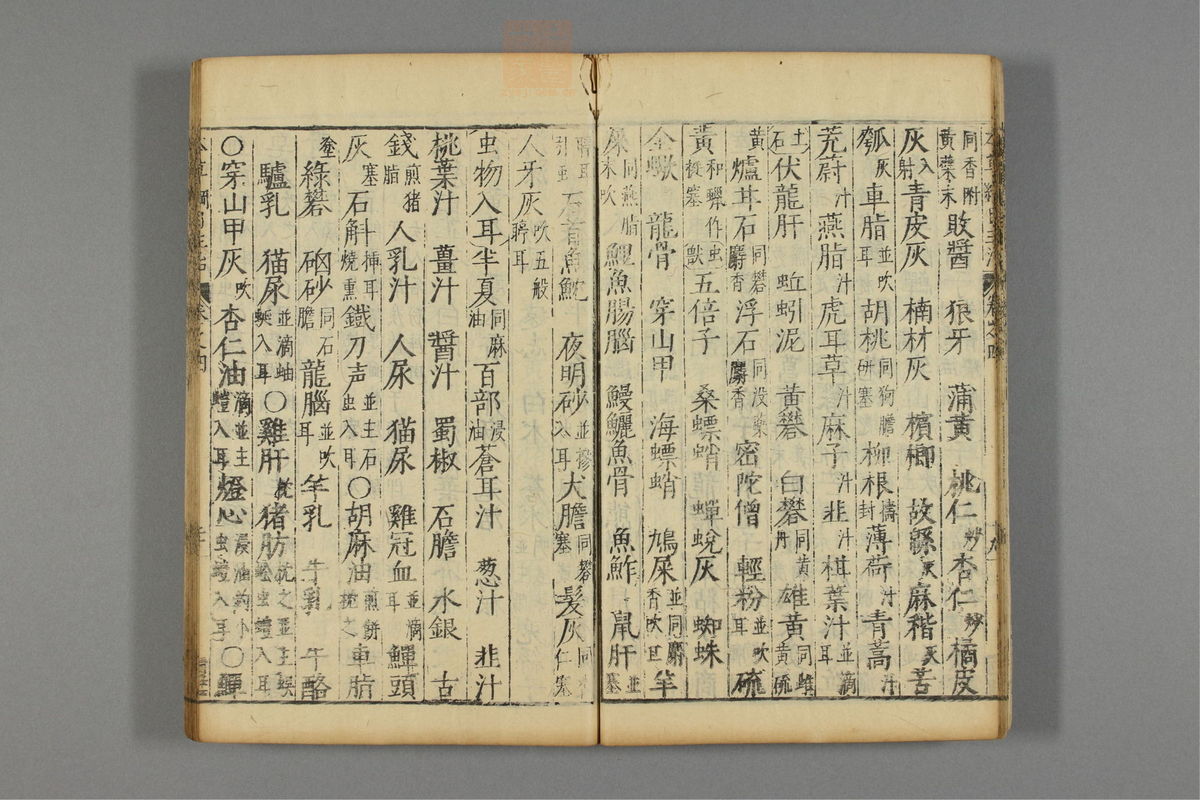 同香附黄蘗末敗醬 狼牙 蒲黄 桃仁炒杏仁炒橘皮
灰入射青皮灰 楠材灰 檳榔 故綿灰麻稭灰苦
瓠灰車脂並吹耳胡桃同狗膽研塞柳根擣封薄荷汁青蒿汁
茺蔚汁燕脂汁虎耳草汁麻子汁韭汁柑葉汁並滴耳
土石伏龍肝 蚯蚓泥 黄礬 白礬同黄丹雄黄同雌黄硫
黄爐甘石同礬麝香浮石同没藥麝香密陀僧 輕粉並吹耳硫
黄和蠟作挺塞虫獸五倍子 桑螵蛸 蟬蛻灰 蜘蛛
全蠍 龍骨 穿山甲 海螵蛸 鳩屎並同麝香吹耳羊
屎同燕脂末吹鯉魚腸腦 鰻鱺魚骨 魚鮓 鼠肝並塞
石首魚魫 夜明砂並摻入耳犬膽同礬塞髮灰同杏仁塞
人牙灰吹五般聤耳
虫物入耳半夏同麻油百部浸油蒼耳汁 葱汁 韭汁
桃葉汁 薑汁 醬汁 蜀椒 石膽 水銀 古
錢煎猪脂人乳汁 人尿 猫尿 雞冠血並滴耳鱓頭
灰塞石斛揷耳燒熏鐵刀声並主石虫入耳〇胡麻油煎餅枕之車脂
塗綠礬 硇砂同石膽龍腦並吹耳羊乳 牛乳 牛酪
驢乳 猫尿並滴蚰蜒入耳〇雞肝枕之猪肪枕之並主蜈蚣虫蟻入耳
〇穿山甲灰吹杏仁油滴並主蟻入耳燈心浸油釣小虫蟻入耳〇鱓